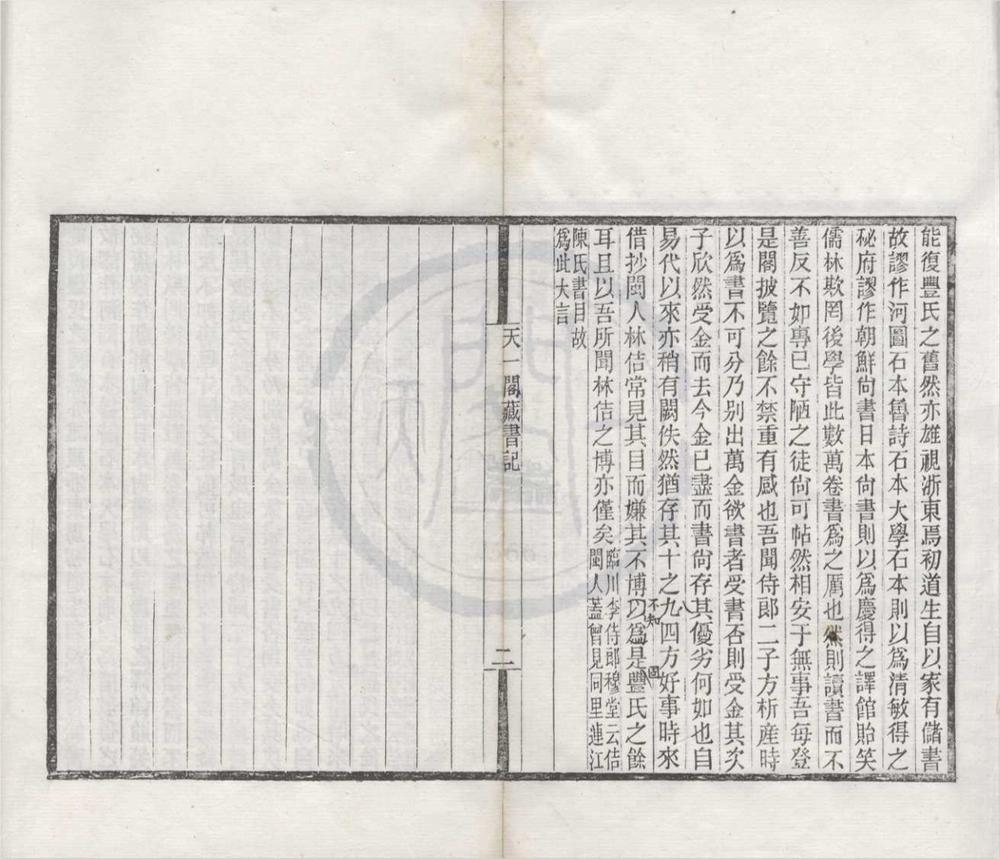 能復豐氏之舊然亦雄視浙東焉初道生自以家有儲書
故謬作河圖石本魯詩石本大學石本則以爲清敏得之
秘府謬作朝鮮尙書日本尙書則以爲慶得之譯館貽笑
儒林欺罔後學皆此數萬卷書爲之厲也然則讀書而不
善反不如專己守陋之徒尙可帖然相安于無事吾每登
是閣披覽之餘不禁重有感也吾聞侍郎二子方析産時
以爲書不可分乃別出萬金欲書者受書否則受金其次
子欣然受金而去今金已盡而書尙存其優劣何如也自
易代以來亦稍有闕佚然猶存其十之九四方好事時來
八
借抄閩人林佶常見其目而嫌其不博以爲是豐氏之餘
不知
固
耳且以吾所聞林佶之博亦僅矣
臨川李侍郎穆堂云佶
閩人蓋曾見同里連江
陳氏書目故
爲此大言
天一閣藏書記
二